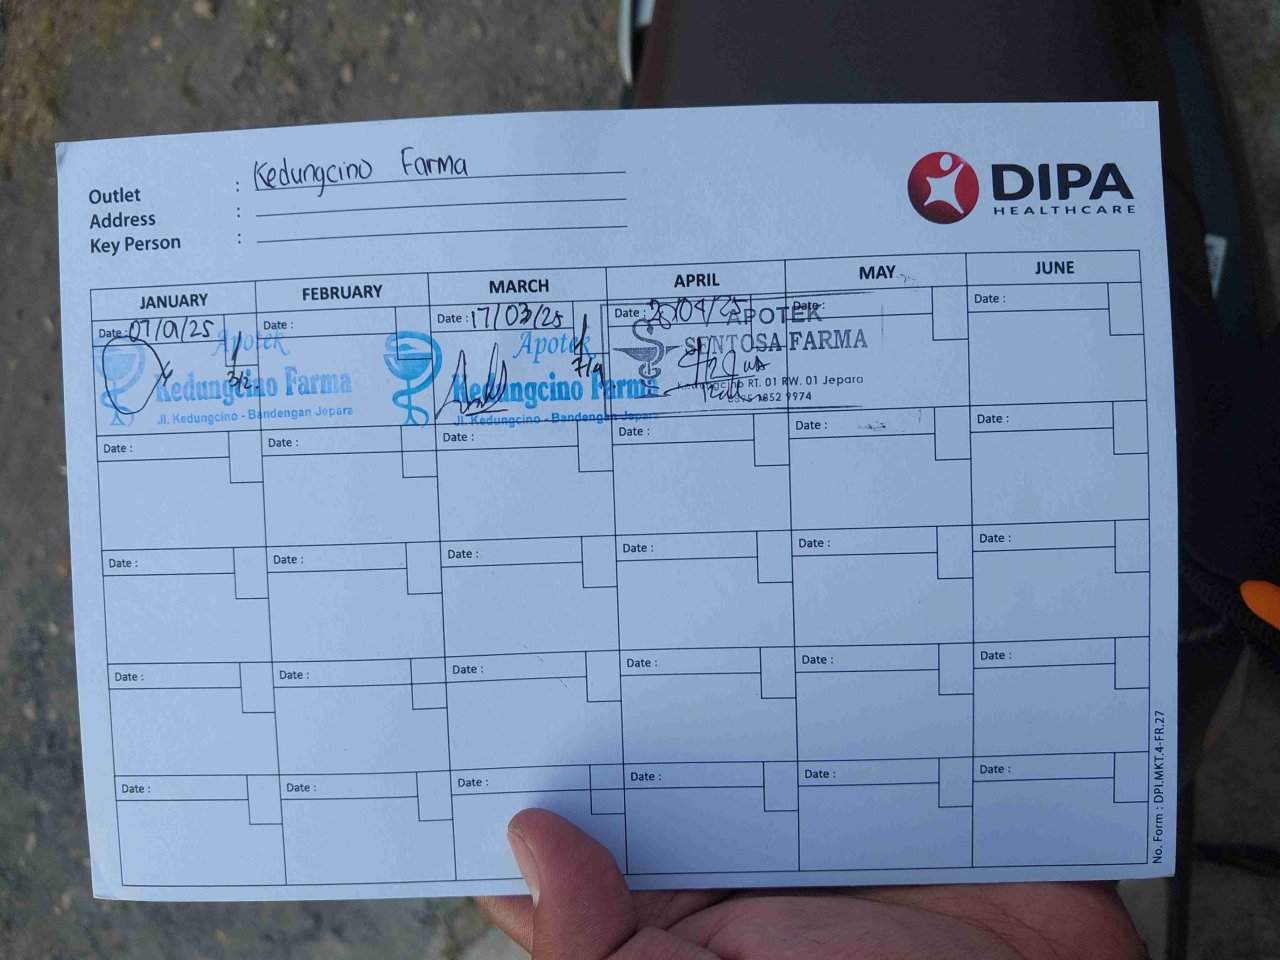 Outlet : Kedungcino Farma
Address :
Key Person :
DIPA
HEALTHCARE
JANUARY FEBRUARY MARCH APRIL MAY JUNE
Date : 07/01/25 Date : Date : 17/03/25 Date : Date : Date :
Apotek
Kedungcino Farma
Jl. Kedungcino - Bandengan Jepara
3/2
Apotek
Kedungcino Farma
Jl. Kedungcino - Bandengan Jepara
7/4
APOTEK
SENTOSA FARMA
Kedungcino RT. 01 RW. 01 Jepara
Date : Date : Date : Date : Date : Date :
Date : Date : Date : Date : Date : Date :
Date : Date : Date : Date : Date : Date :
Date : Date : Date : Date : Date : Date :
No. Form : DPI.MKT.4-FR.27